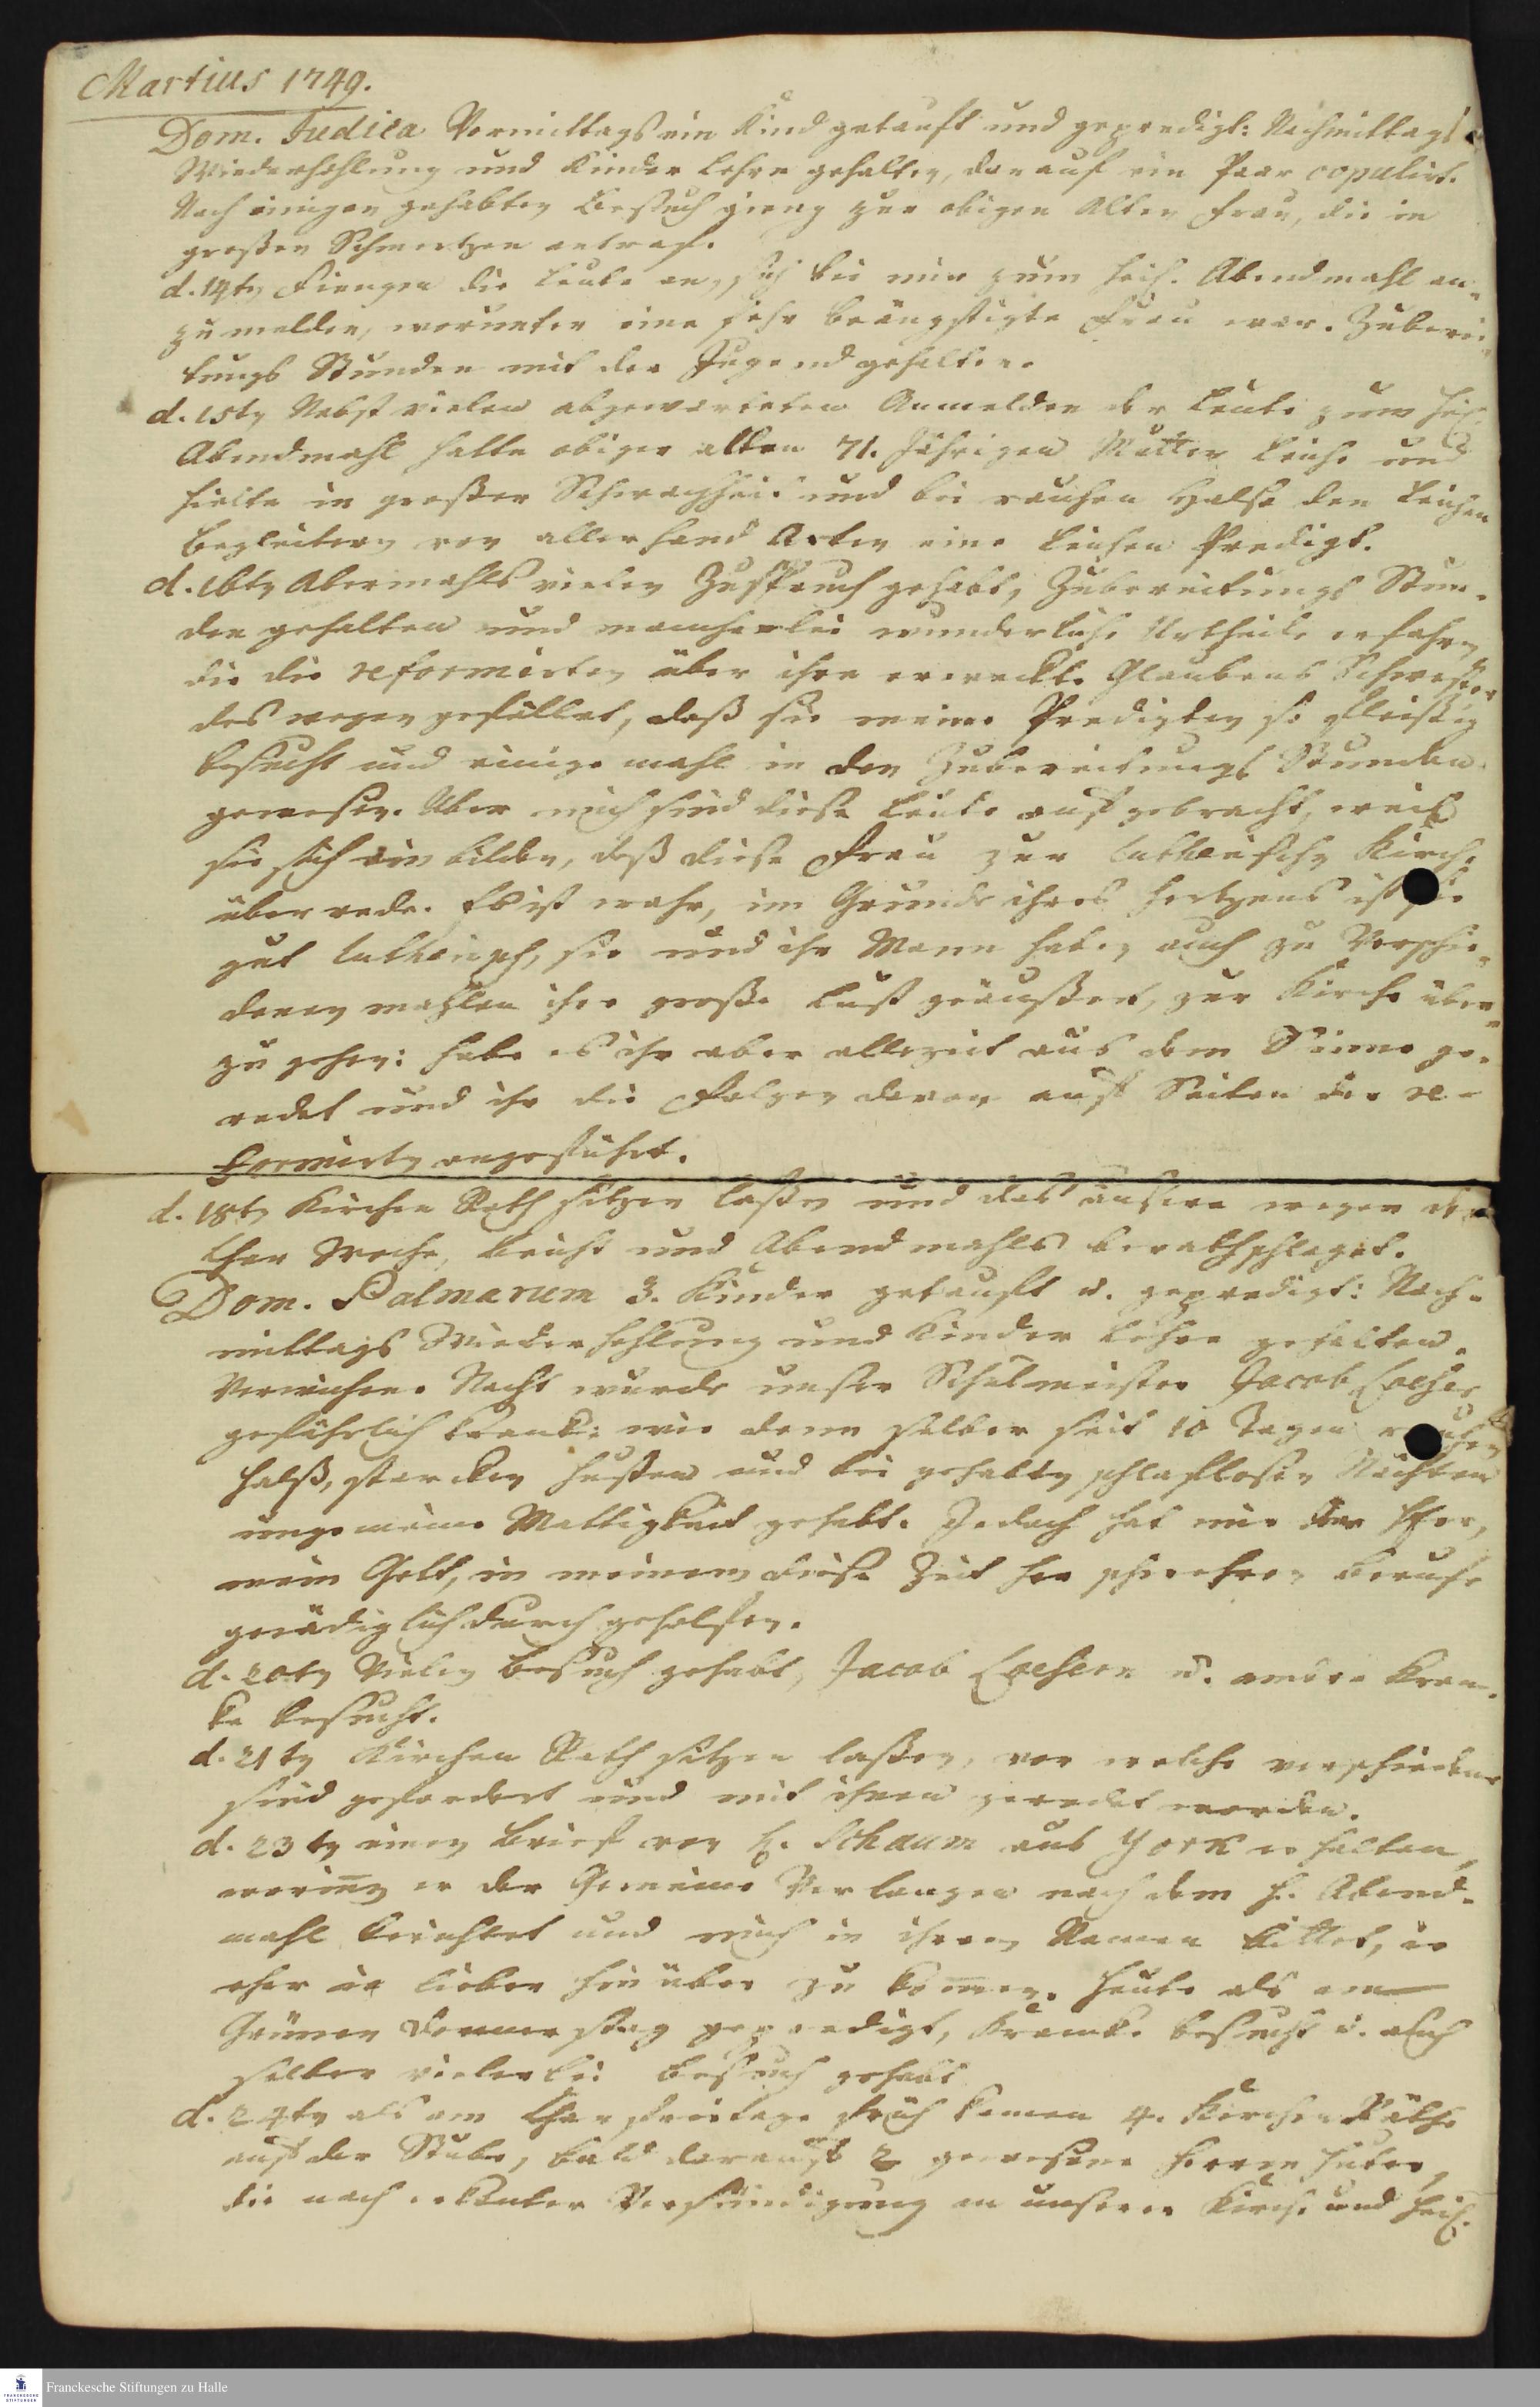 Martius 1749.
Dom. Judica Vormittags ein Kind getauft und geprediget: Nachmittags
Wiederhohlung und Kinder Lehre gehalten, darauf ein Paar copulirt.
Nach einigen gehabten Besuch gieng zur obigen alten Frau, die in
großen Schmertzen antraf.
d. 14tn Fiengen die Leute an, sich bei mir zum heil. Abendmahl an-
zumelden, worunter eine sehr beängstigte Frau war. Zuberei-
tungs Stunden mit der Jugend gehalten.
d. 15tn Nebst vielen abgewarteten Anmelden der Leute zum heil.
Abendmahl hatte obiger alten 71. Jährigen Mutter Leiche und
hielte in großer Schwachheit und bei rauhen Halse den Leichen
Begleitern von allerhand Arten eine Leichen Predigt.
d. 16tn Abermahls vielen Zuspruch gehabt, Zubereitungs Stun-
den gehalten und mancherlei wunderliche Urtheile erfahren
die die reformirten über ihre erweckte Glaubens Schwester
des wegen gefället, daß sie meine Predigten so fleißig
besucht und einige mahl in den Zubereitungs Stunden
gewesen. Über mich sind diese Leute aufgebracht, weil
sie sich ein bilden, daß diese Frau zur lutherischen Kirche
überrede. Es ist wahr, im Grunde ihres Hertzens ist sie
gut lutherisch, sie und ihr Mann haben auch zu Verschie-
denen mahlen ihre große Lust geäußert, zur Kirche über-
zu gehen: habe es ihr aber allezeit aus dem Sinne ge-
redet und ihr die Folgen davon auf Seiten der re-
formirten angeführet.
d. 18tn Kirchen Rath sitzen laßen und das äusere wegen der
Char Woche, Beicht und Abendmahls berathschlaget.
Dom. Palmarum 3. Kinder getauft u. geprediget: Nach-
mittags Wiederhohlung und Kinder Lehre gehalten.
Verwichene Nacht wurde unser Schulmeister Jacob Loeser
gefährlich kranck: wie denn selber seit 10 Tagen rauhen
Halß, starcken Husten und bei gehabten schlaflosen Nächten
ungemeine Mattigkeit gehabt. Jedoch hat mir der Herr,
mein Gott, in meinem diese Zeit her schweren Berufe
gnädiglich durch geholfen.
d. 20tn Vielen Besuch gehabt, Jacob Loesern u. andre Kran-
ke besucht.
d. 21tn Kirchen Rath sitzen laßen, vor welche verschiedene
sind gefordert und mit ihnen geredet worden.
d. 23tn einen Brief von H. Schaum aus York erhalten,
worinn er der Gemeine Verlangen nach dem h. Abend-
mahl berichtet und mich in ihrem Namen bittet, ie
eher ie lieber hinüber zu kommen. Heute als am
Grünen Donnerstag geprediget, Krancke besucht u. auch
selber vielerlei Besuch gehabt.
d. 24tn als am Charfreitage früh kamen 4. Kirchen Räthe
auf der Stube, bald darauf 2 gewesene Herrnhuter,
die nach erkanter Versündigung an unserer Kirche und heil.
Franckesche Stiftungen zu Halle